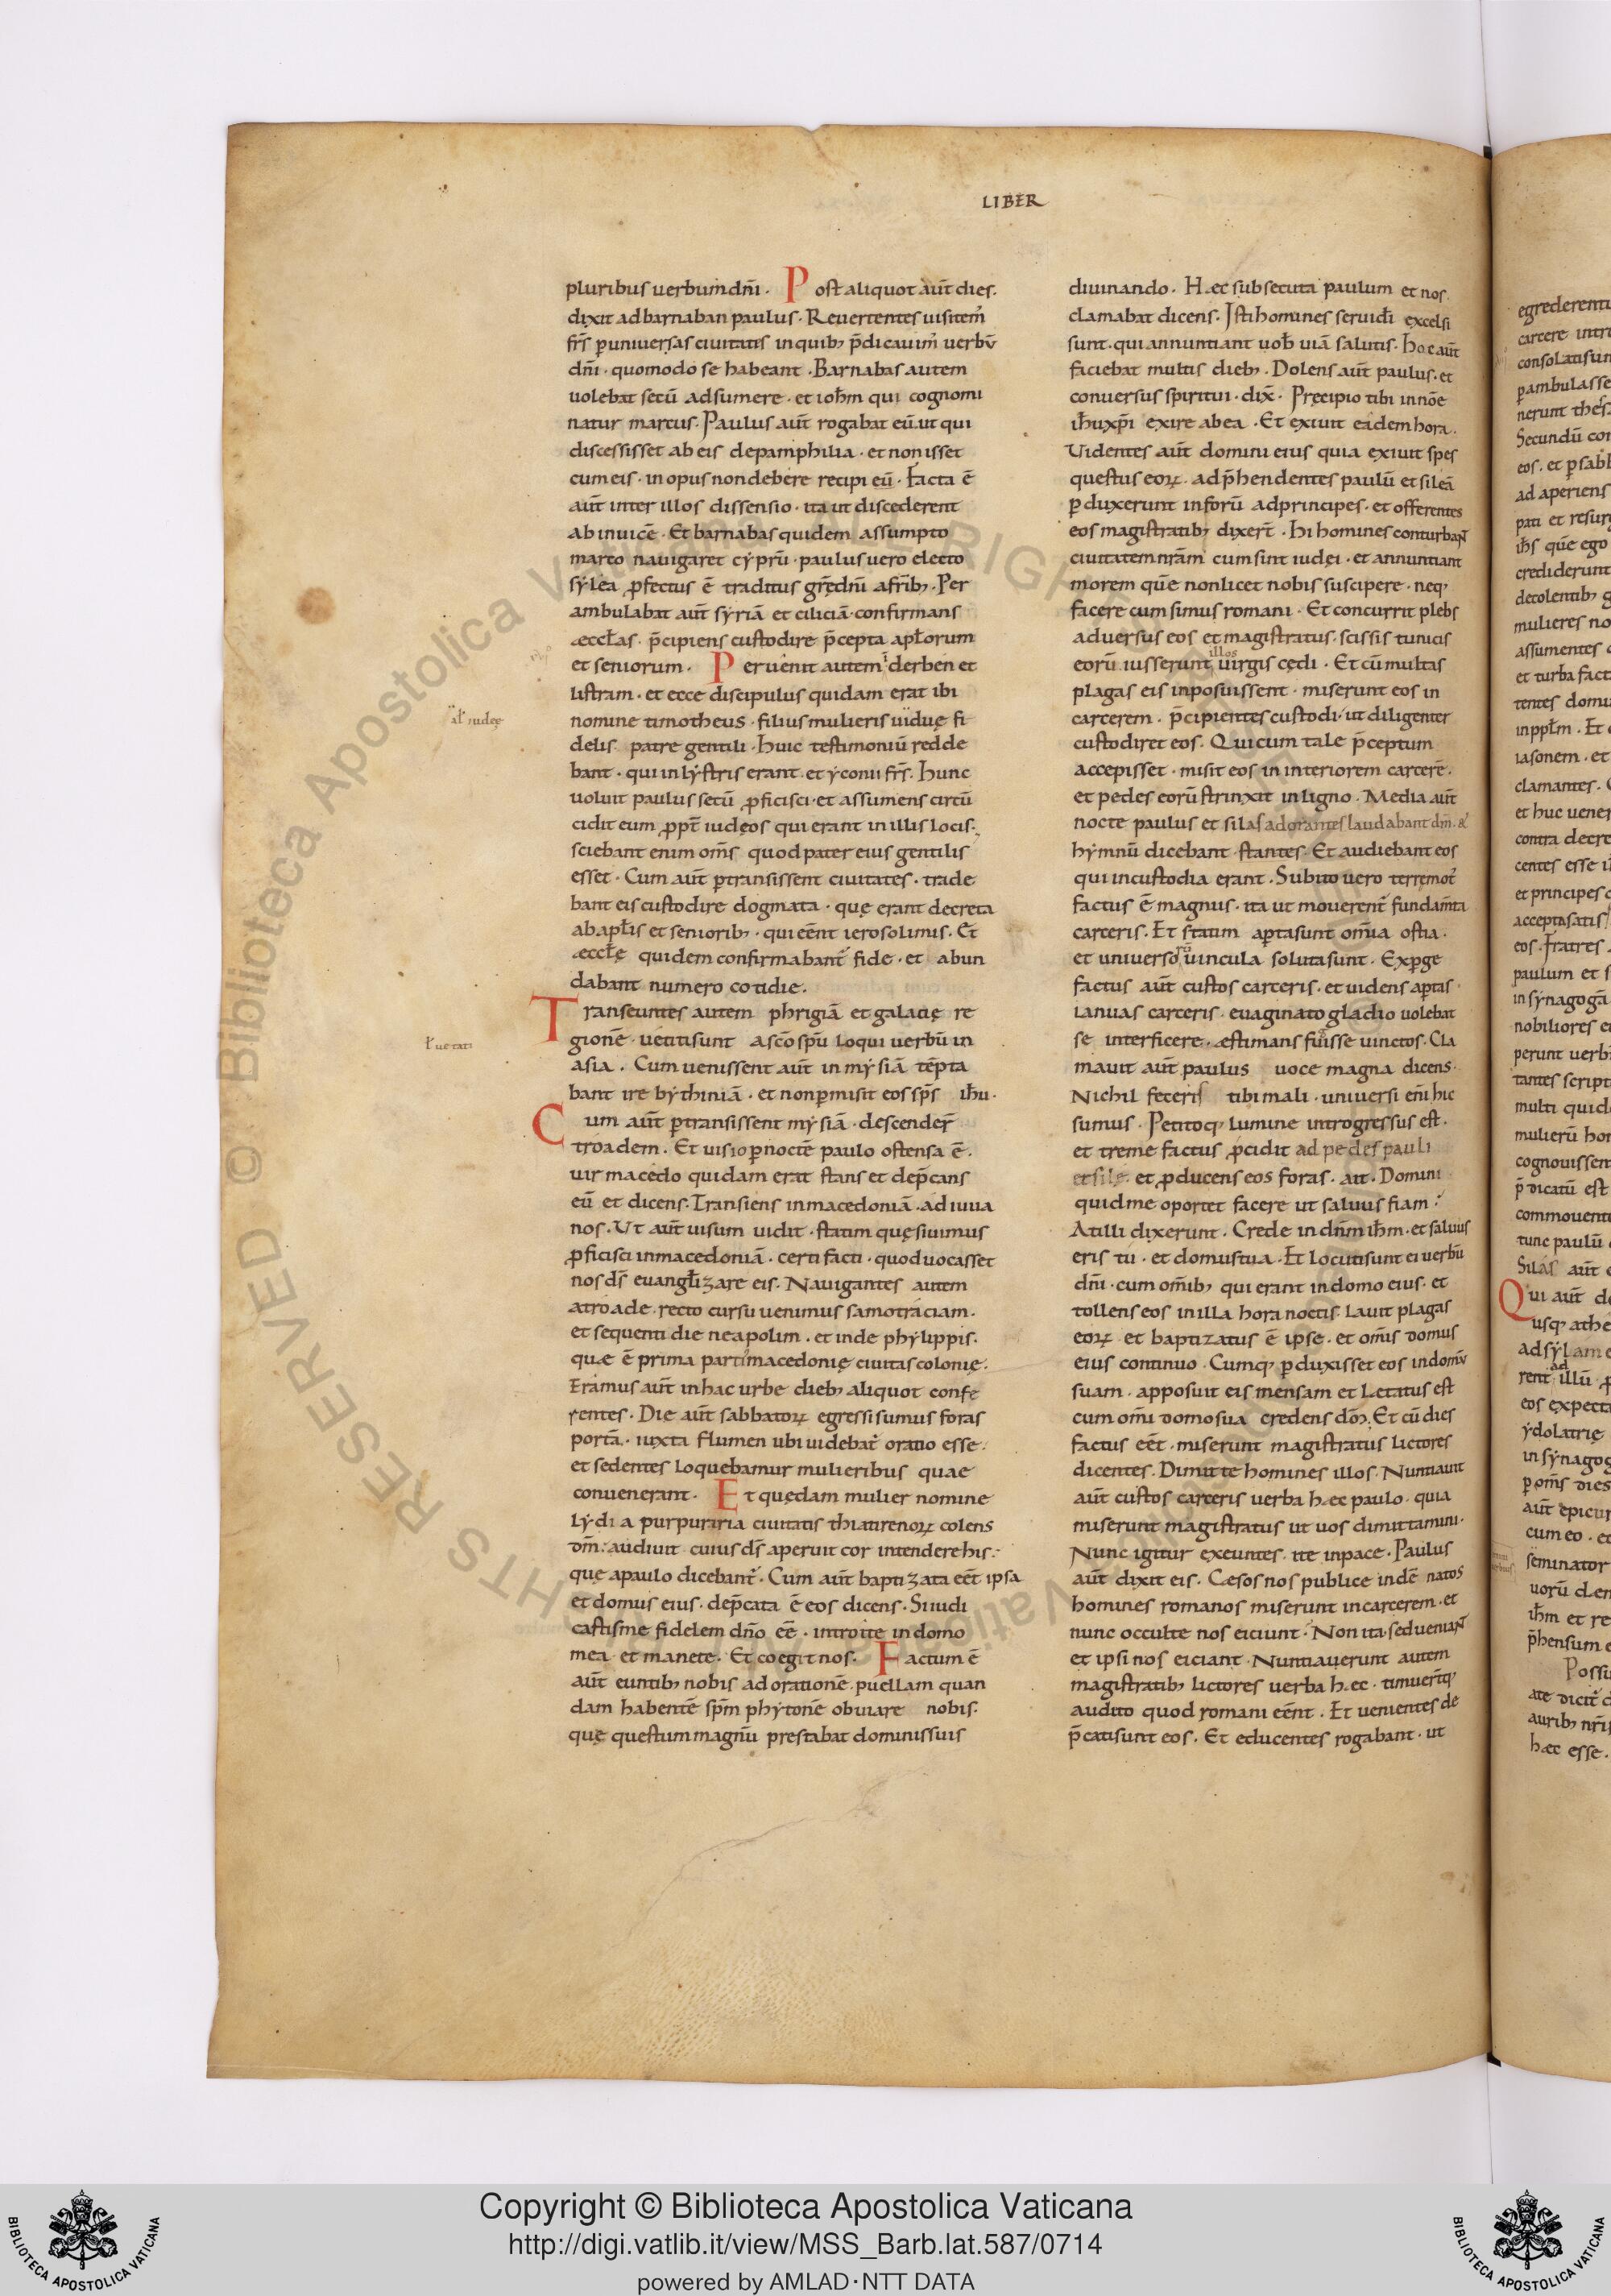 LIBER
pluribus uerbum dñi · Post aliquot aut̄ dies ·
dixit ad barnaban paulus · Reuertentes uisitem᷒
fr̄s ꝑ uniuersas ciuitatis in quib; p̄dicauim᷒ uerbū
dñi · quomodo se habeant · Barnabas autem
uolebat secū adsumere · et ioħm qui cognomi
natur marcus · Paulus aut̄ rogabat eū ut qui
discessisset ab eis de pamphilia · et non isset
cum eis · in opus non debere recipi eū · Facta ē
aut̄ inter illos dissensio · ita ut discederent
ab inuicē · Et barnabas quidem assumpto
marco nauigaret cyprū · paulus uero electo
sylea ꝓfectus ē traditus gr̄e dñi a fr̄ib; · Per
ambulabat aut̄ syriā et ciliciā · confirmans
æccl̄as · p̄cipiens custodire p̄cepta apl̄orum
et seniorum · Peruenit autem i derben et
listram · et ecce discipulus quidam erat ibi
al̄ iudeę
nomine timotheus · filius mulieris uiduę fi
delis patre gentili · Huic testimoniū redde
bant · qui in lystris erant · et yconii fr̄s · Hunc
uoluit paulus secū ꝓficisci · et assumens circū
cidit eum ꝓpt̄ iudęos qui erant in illis locis ·
sciebant enim om̄s quod pater eius gentilis
esset · Cum aut̄ ꝑtransissent ciuitates · trade
bant eis custodire dogmata · quę erant decreta
ab apl̄is et seniorib; · qui eēnt ierosolimis · Et
æccl̄ę quidem confirmabant᷒ fide · et abun
dabant numero cotidie ·
Transeuntes autem phrigiā et galatię re
gionē · uetiti sunt a sc̄o sp̄u loqui uerbū in
asia · Cum uenissent aut̄ in mysiā tēpta
bant ire bythiniā · et non ꝑmisit eos sp̄s iħu ·
Cum aut̄ ꝑtransissent mysiā · descender̄
troadem · Et uisio ꝑ noctē paulo ostensa ē ·
uir macedo quidam erat stans et dep̄cans
eū et dicens · Transiens in macedoniā · adiuua
nos · Ut aut̄ uisum uidit · statim quęsiuimus
ꝓficisci in macedoniā · certi facti · quod uocasset
nos d̄s euangl̄izare eis · Nauigantes autem
a troade · recto cursu uenimus samotraciam ·
et sequenti die neapolim · et inde phylippis ·
quæ ē prima parti᷒ macedonię ciuitas colonię ·
Eramus aut̄ in hac urbe dieb; aliquot confe
rentes · Die aut̄ sabbatoꝝ egressi sumus foras
portā · iuxta flumen ubi uidebat᷒ oratio esse ·
et sedentes loquebamur mulieribus quae
conuenerant · Et quędam mulier nomine
lydia purpuraria ciuitatis thiatirenoꝝ colens
dm̄ · audiuit cuius d̄s aperuit cor intendere his ·
quę a paulo dicebant᷒ · Cum aut̄ baptizata eēt ipsa
et domus eius · dep̄cata ē eos dicens · Si iudi
castisme fidelem dño eē · introite in domo
mea et manete · Et coegit nos · Factum ē
aut̄ euntib; nobis ad orationē · puellam quan
dam habentē sp̄m phytonē obuiare nobis ·
quę questum magnū prestabat dominis suis
diuinando · Hæc subsecuta paulum et nos
clamabat dicens · Isti homines serui di excelsi
sunt · qui annuntiant uob̄ uiā salutis · hoc aut̄
faciebat multis dieb; · Dolens aut̄ paulus · et
conuersus spiritui · dix̄ · Pręcipio tibi in nōe
iħu xp̄i exire ab ea · Et exiuit eadem hora ·
Uidentes aut̄ domini eius quia exiuit spes
questus eoꝝ · adp̄hendentes paulū et sileā
ꝑduxerunt in forū ad principes · et offerentes
eos magistratib; dixer̄t · Hi homines conturbant
ciuitatem nr̄am cum sint iudęi · et annuntiant
morem quē non licet nobis suscipere · neq;
facere cum simus romani · Et concurrit plebs
aduersus eos et magistratus · scissis tunicis
eorū iusserunt illos uirgis cędi · Et cū multas
plagas eis inposuissent · miserunt eos in
carcerem · p̄cipientes custodi · ut diligenter
custodiret eos · Qui cum tale p̄ceptum
accepisset · misit eos in interiorem carcerē ·
et pedes eorū strinxit in ligno · Media aut̄
nocte paulus et silas adorantes laudabant dm̄ · &
hymnū dicebant stantes · Et audiebant eos
qui in custodia erant · Subito uero terręmot᷒
factus ē magnus · ita ut mouerent᷒ fundam̄ta
carceris · Et statim aꝑta sunt om̄ia ostia ·
et uniuersorū uincula soluta sunt · Exꝑge
factus aut̄ custos carceris · et uidens aꝑtas
ianuas carceris · euaginato gladio uolebat
se interficere · æstimans fuisse uinctos · Cla
mauit aut̄ paulus uoce magna dicens ·
Nichil feceris tibi mali · uniuersi eni hic
sumus · Petitoq; lumine introgressus est ·
et treme factus ꝓcidit ad pedes pauli
et silę · et ꝓducens eos foras · ait · Domini
quid me oportet facere ut saluus fiam ?
At illi dixerunt · Crede in dn̄m iħm · et saluus
eris tu · et domus tua · Et locuti sunt ei uerbū
dñi · cum om̄ib; qui erant in domo eius · et
tollens eos in illa hora noctis · lauit plagas
eoꝝ et baptizatus ē ipse · et om̄is domus
eius continuo · Cumq; ꝑduxisset eos in domū
suam · apposuit eis mensam et letatus est
cum om̄i domo sua credens dō · Et cū dies
factus eēt · miserunt magistratus lictores
dicentes · Dimitte homines illos · Nuntiauit
aut̄ custos carceris uerba hæc paulo · quia
miserunt magistratus ut uos dimittamini ·
Nunc igitur exeuntes · ite in pace · Paulus
aut̄ dixit eis · Cæsos nos publice indē natos
homines romanos miserunt in carcerem · et
nunc occulte nos eiciunt · Non ita sed ueniant
et ipsi nos eiciant · Nuntiauerunt autem
magistratib; lictores uerba hæc · timuer̄tq;
audito quod romani eēnt · Et uenientes de
p̄cati sunt eos · Et educentes rogabant · ut
Copyright © Biblioteca Apostolica Vaticana
http://digi.vatlib.it/view/MSS_Barb.lat.587/0714
powered by AMLAD·NTT DATA
BIBLIOTECA APOSTOLICA VATICANA
BIBLIOTECA APOSTOLICA VATICANA